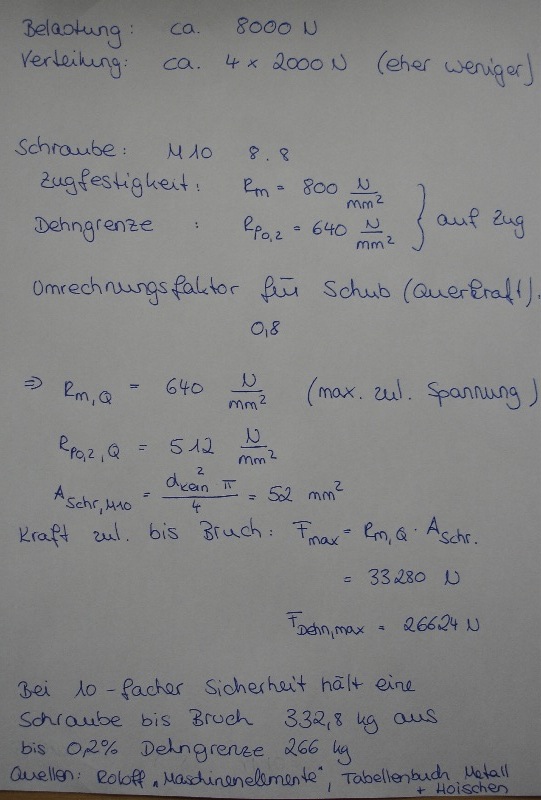 Belastung: ca. 8000 N
Verteilung: ca. 4 x 2000 N (eher weniger)
Schraube: M10 8.8
Zugfestigkeit: Rm = 800 N/mm²
Dehngrenze : Rp0,2 = 640 N/mm² } auf Zug
Umrechnungsfaktor für Schub (Querkraft).
0,8
⇒ Rm,Q = 640 N/mm² (max. zul. Spannung)
Rp0,2,Q = 512 N/mm²
ASchr,M10 = dkern² π / 4 = 52 mm²
Kraft zul. bis Bruch: Fmax = Rm,Q · ASchr.
= 33280 N
FDehn,max = 26624 N
Bei 10-facher Sicherheit hält eine
Schraube bis Bruch 332,8 kg aus
bis 0,2% Dehngrenze 266 kg
Quellen: Roloff „Maschinenelemente", Tabellenbuch Metall
+ Hoischen